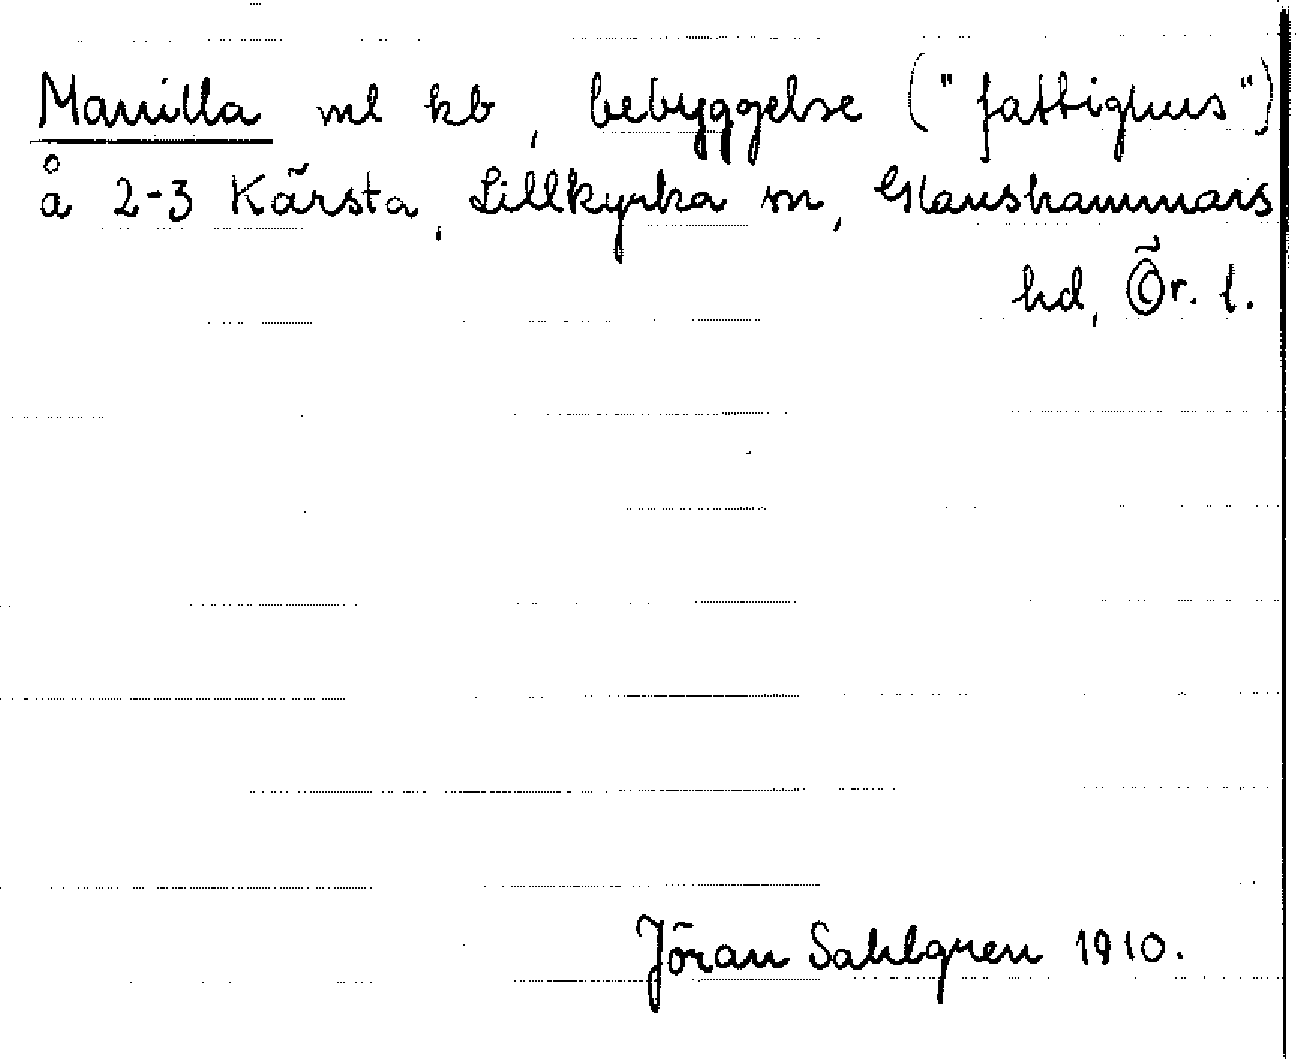 Manilla ml kb, bebyggelse ("fattighus")
å 2-3 Kärsta, Lillkyrka sn, Glanshammars
hd, Ör. l.
Jöran Sahlgren 1910.